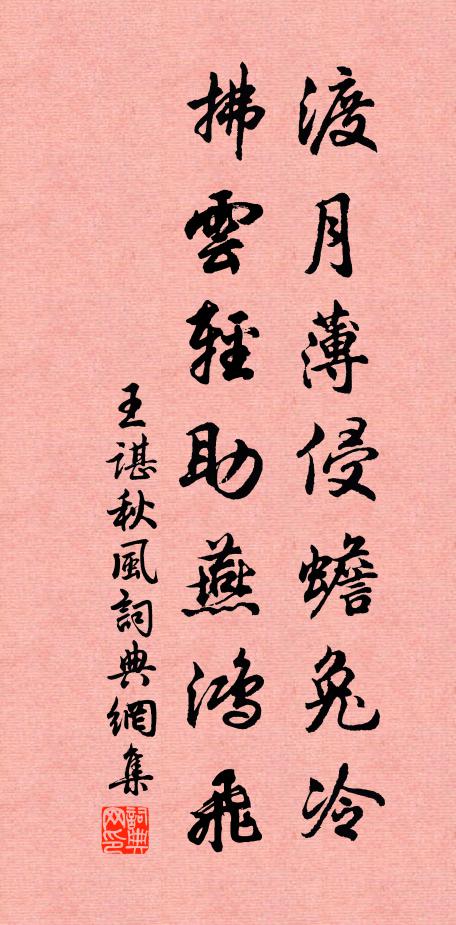 渡月薄侵蟾兔冷
拂雲輕助燕鴻飛
王諶秋風詞典網集
詞典網印